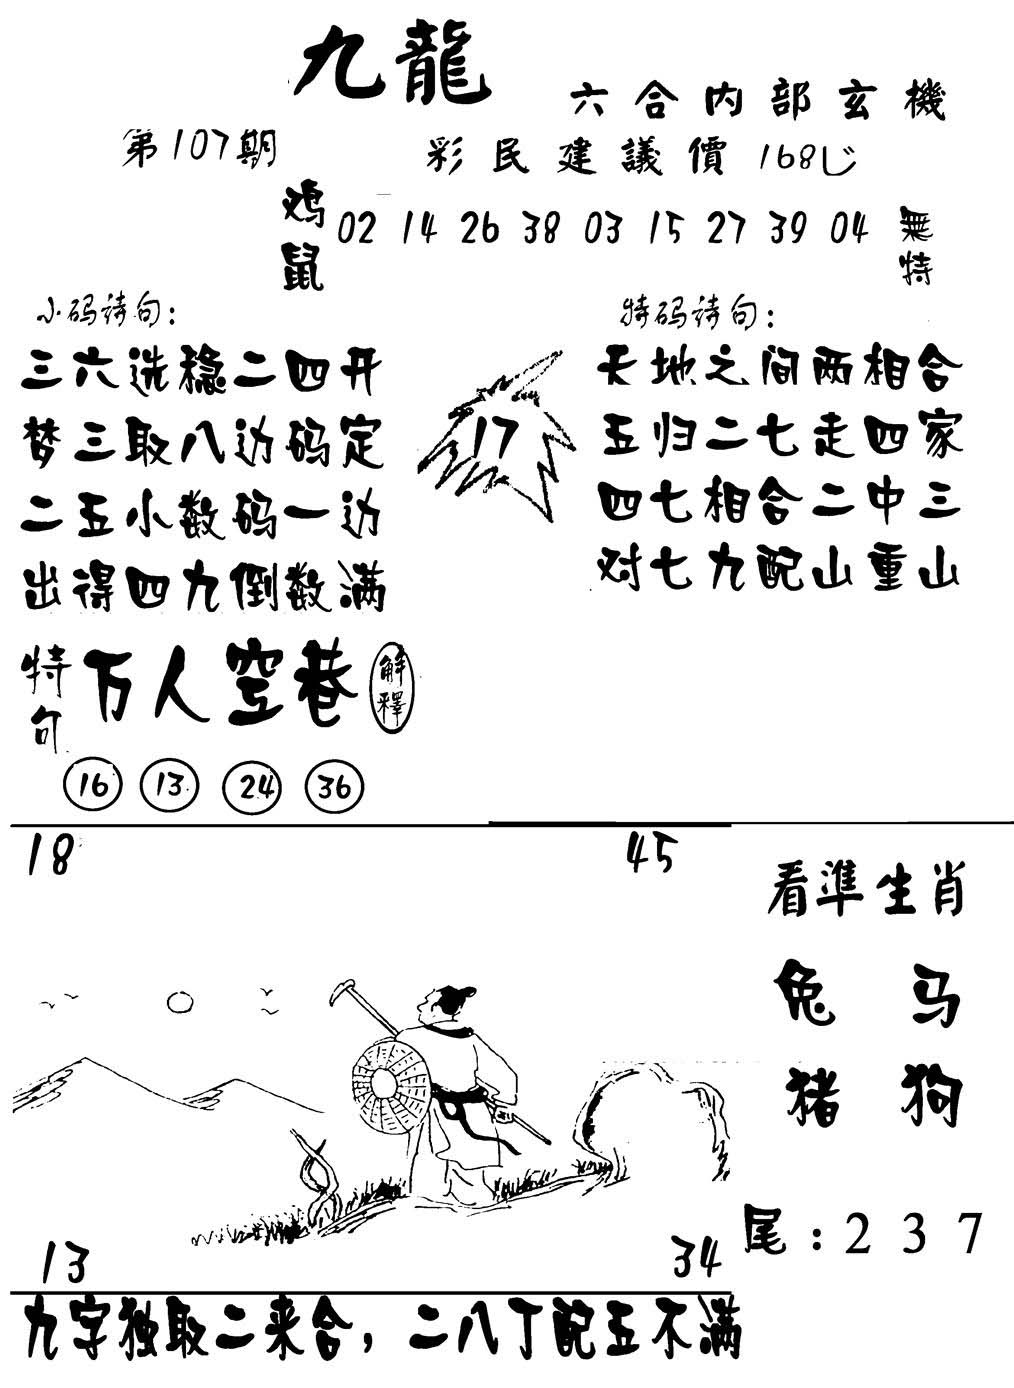 九龍
六合内部玄機
第107期
彩民建議價168じ
鸡鼠
02 14 26 38 03 15 27 39 04
無特
小码诗句：
三六选稳二四开
梦三取八边码定
二五小数码一边
出得四九倒数满
17
特码诗句：
天地之间两相合
五归二七走四家
四七相合二中三
对七九配山重山
特句
万人空巷
解釋
16 13 24 36
18 45
看準生肖
兔 马
猪 狗
尾：2 3 7
13 34
九字独取二来合，二八丁配五不满